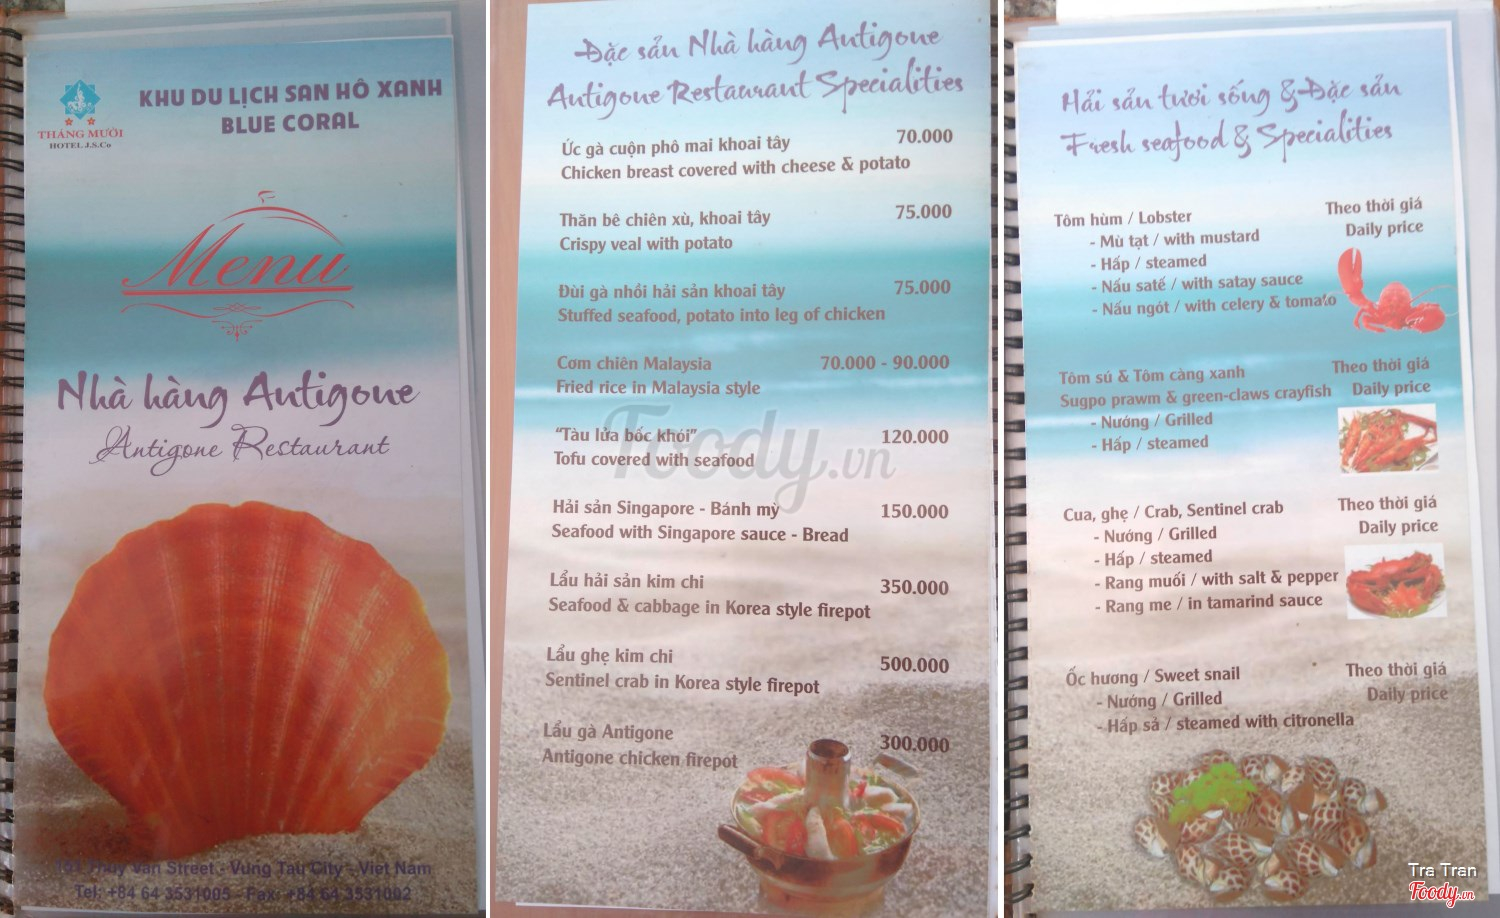 THÁNG MƯỜI
HOTEL J.S.Co
KHU DU LỊCH SAN HÔ XANH
BLUE CORAL
Menu
Nhà hàng Antigone
Antigone Restaurant
Thuy Van Street - Vung Tau City - Viet Nam
Tel: +84 64 3531005 - Fax: +84 64 3531002
Đặc sản Nhà hàng Antigone
Antigone Restaurant Specialities
Ức gà cuộn phô mai khoai tây 70.000
Chicken breast covered with cheese & potato
Thăn bê chiên xù, khoai tây 75.000
Crispy veal with potato
Đùi gà nhồi hải sản khoai tây 75.000
Stuffed seafood, potato into leg of chicken
Cơm chiên Malaysia 70.000 - 90.000
Fried rice in Malaysia style
"Tàu lửa bốc khói" 120.000
Tofu covered with seafood
Hải sản Singapore - Bánh mỳ 150.000
Seafood with Singapore sauce - Bread
Lẩu hải sản kim chi 350.000
Seafood & cabbage in Korea style firepot
Lẩu ghẹ kim chi 500.000
Sentinel crab in Korea style firepot
Lẩu gà Antigone 300.000
Antigone chicken firepot
Foody.vn
Hải sản tươi sống & Đặc sản
Fresh seafood & Specialities
Tôm hùm / Lobster Theo thời giá
- Mù tạt / with mustard Daily price
- Hấp / steamed
- Nấu satế / with satay sauce
- Nấu ngót / with celery & tomato
Tôm sú & Tôm càng xanh Theo thời giá
Sugpo prawm & green-claws crayfish Daily price
- Nướng / Grilled
- Hấp / steamed
Cua, ghẹ / Crab, Sentinel crab Theo thời giá
- Nướng / Grilled Daily price
- Hấp / steamed
- Rang muối / with salt & pepper
- Rang me / in tamarind sauce
Ốc hương / Sweet snail Theo thời giá
- Nướng / Grilled Daily price
- Hấp sả / steamed with citronella
Tra Tran
Foody.vn